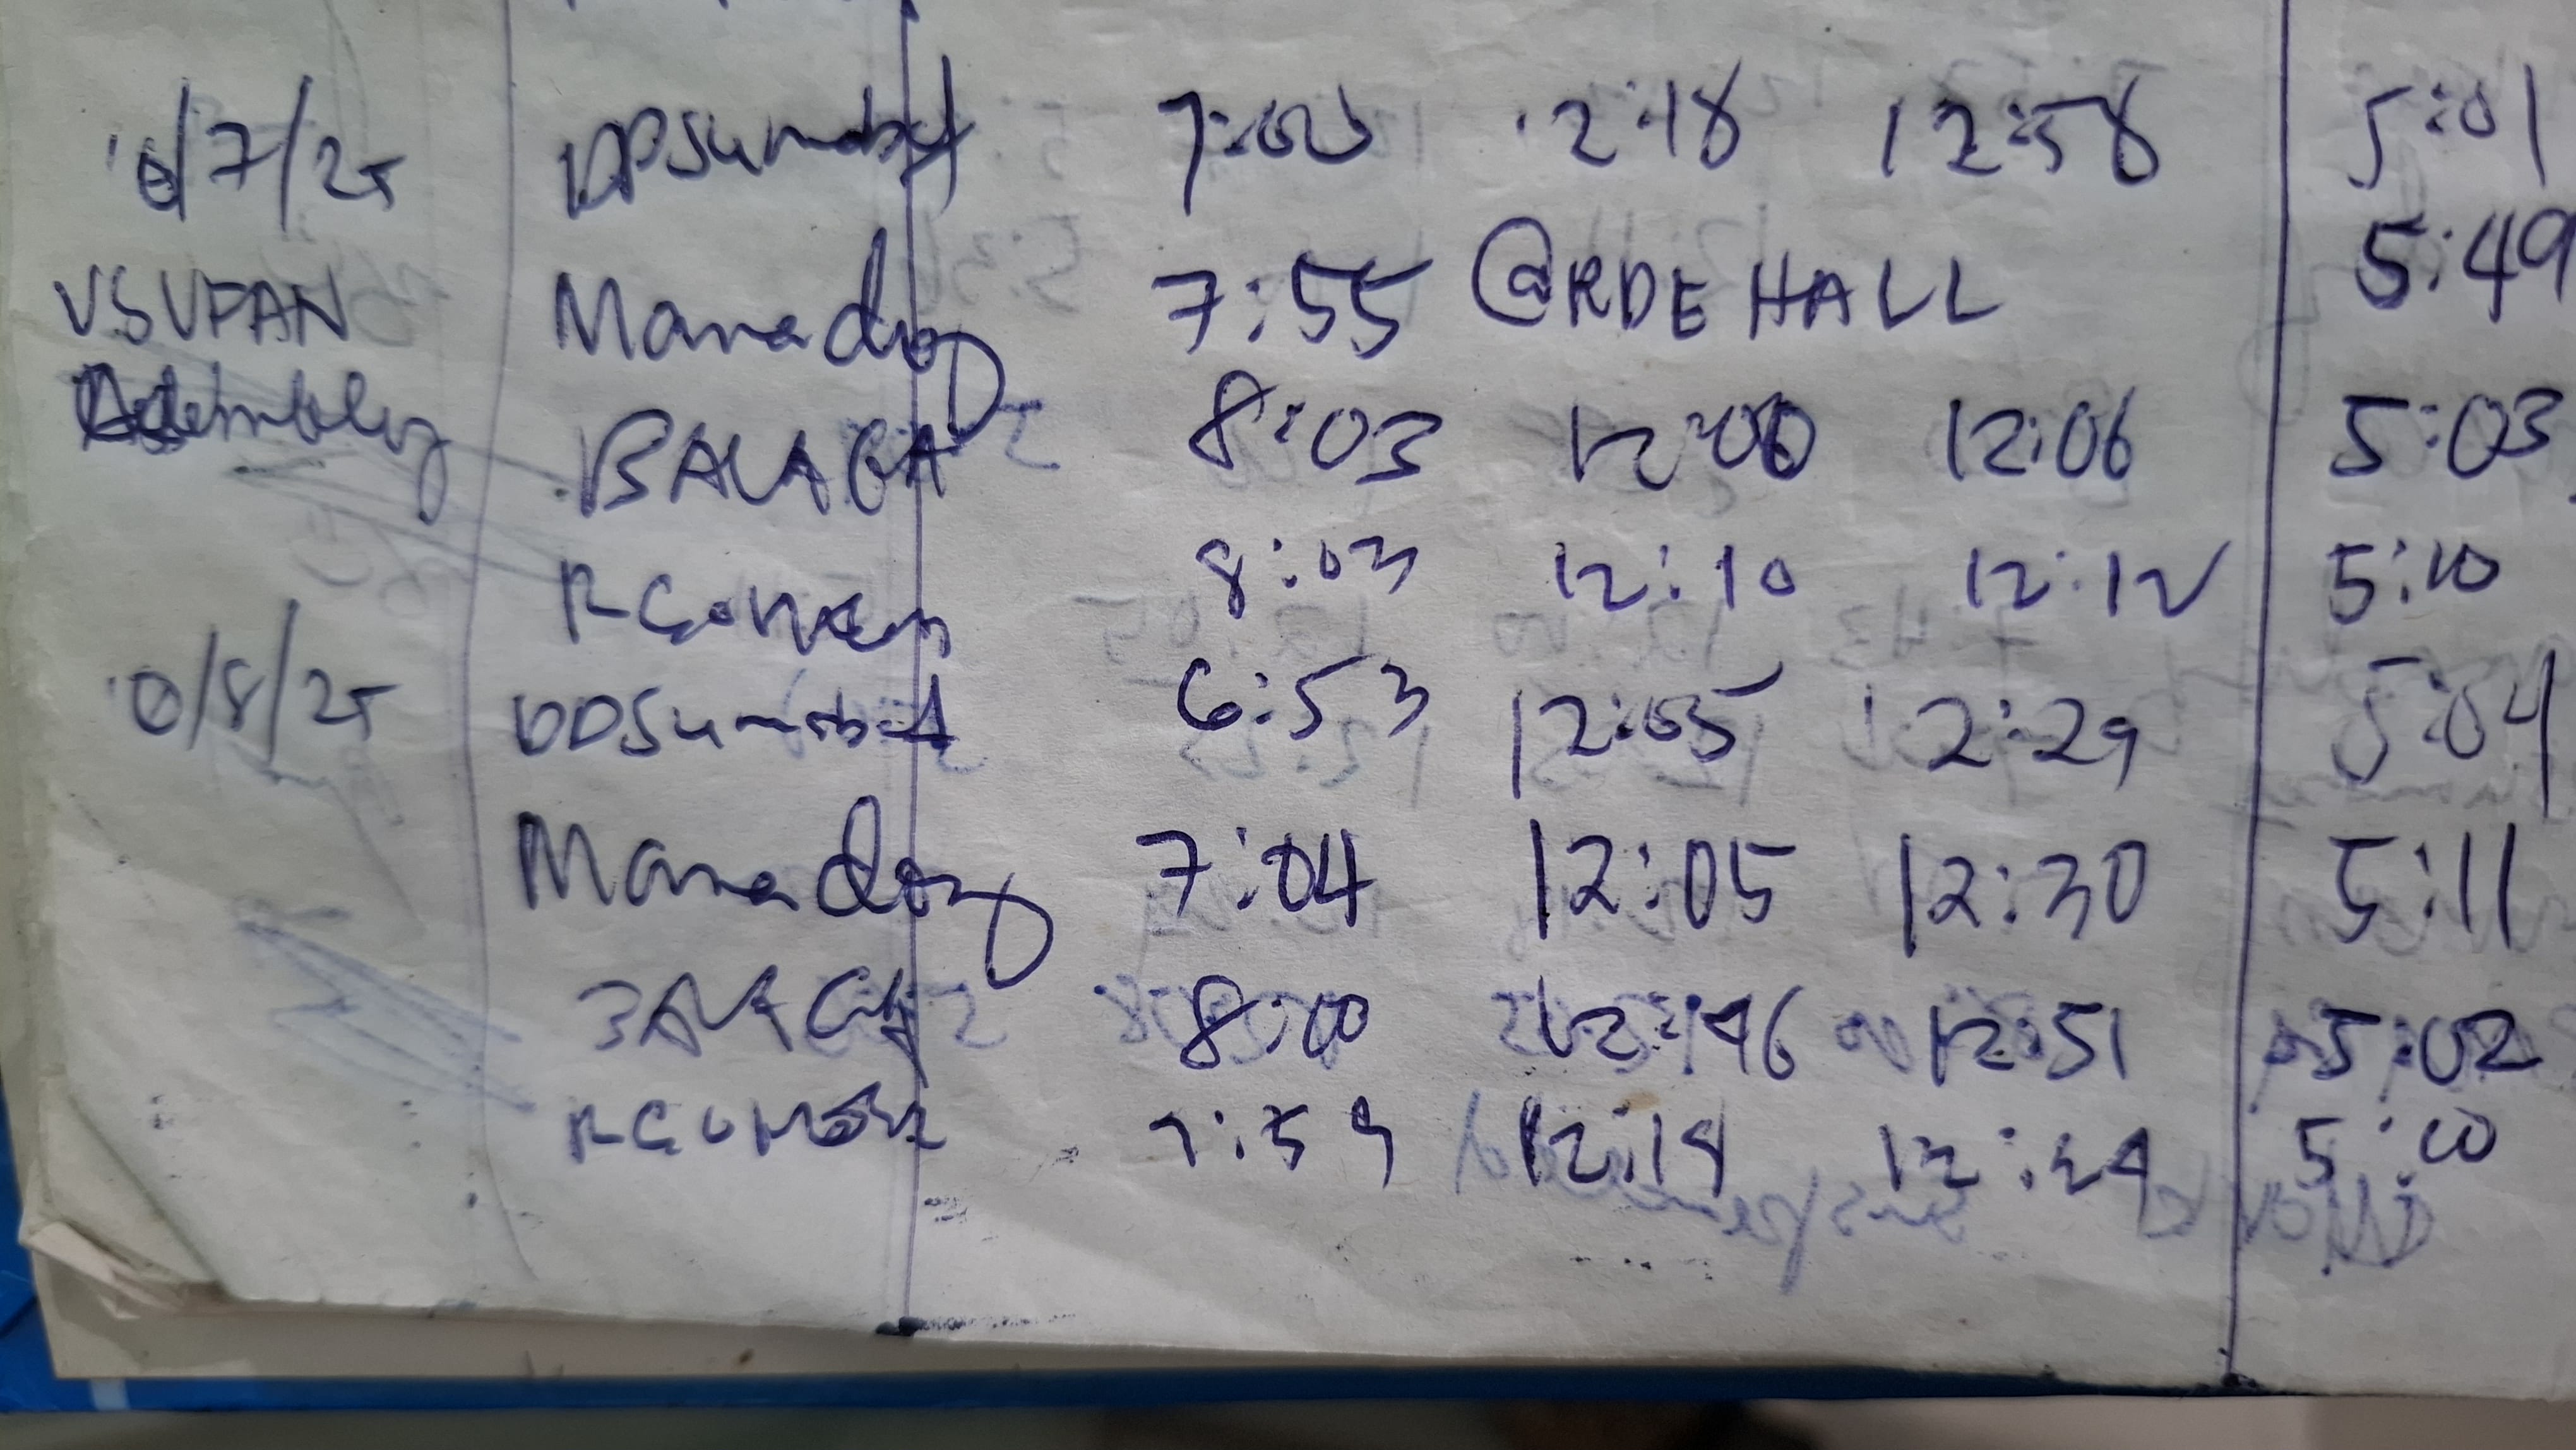 10/7/25 DPSumabat 7:00 12:18 12:58 5:01
VSUFAN 7:55 @RDE HALL 5:49
Assembly BALAGA 8:03 12:00 12:06 5:03
8:03 12:10 12:12 5:10
10/8/25 DDSumabat 6:53 12:05 12:29 5:04
7:04 12:05 12:30 5:11
BALAGA 8:00 12:46 12:51 5:02
7:59 12:19 5:10